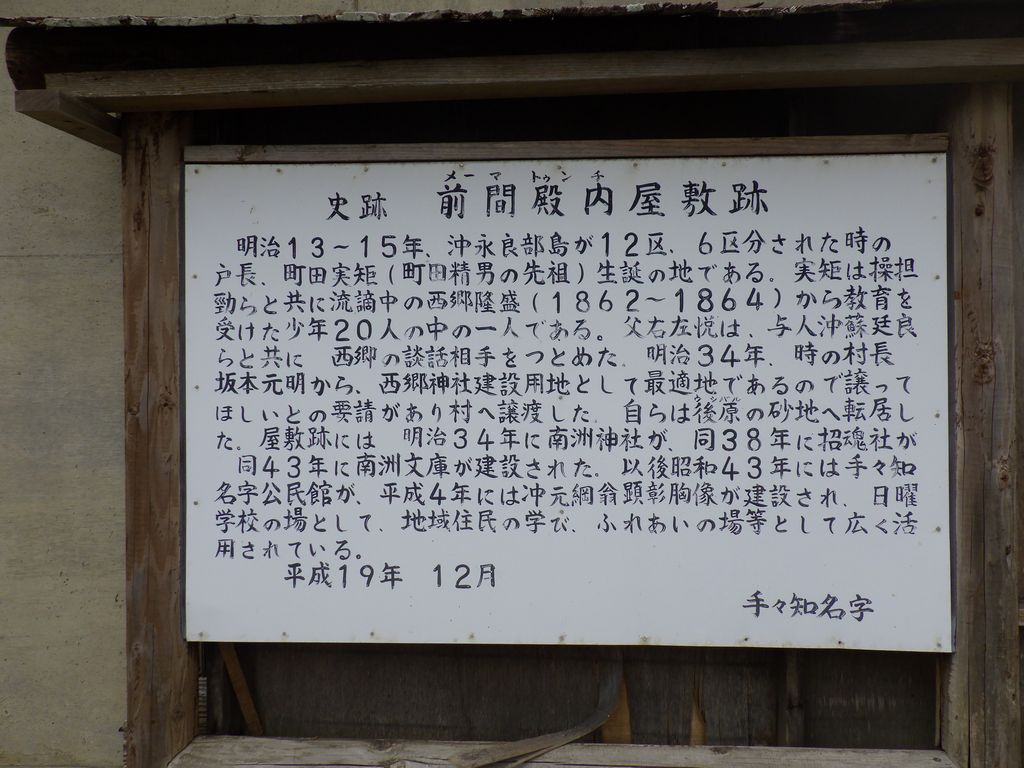 メーマトゥンチ
史跡 前間殿内屋敷跡
明治13〜15年、沖永良部島が12区、6区分された時の
戸長、町田実矩(町田精男の先祖)生誕の地である。実矩は操担
勁らと共に流謫中の西郷隆盛(1862〜1864)から教育を
受けた少年20人の中の一人である。父右左悦は、与人沖蘇廷良
らと共に 西郷の談話相手をつとめた。明治34年、時の村長
坂本元明から、西郷神社建設用地として最適地であるので譲って
ほしいとの要請があり村へ譲渡した。自らは後原の砂地へ転居し
た。屋敷跡には 明治34年に南洲神社が、同38年に招魂社が
同43年に南洲文庫が建設された。以後昭和43年には手々知
名字公民館が、平成4年には沖元綱翁顕彰胸像が建設され、日曜
学校の場として、地域住民の学び、ふれあいの場等として広く活
用されている。
平成19年 12月
手々知名字